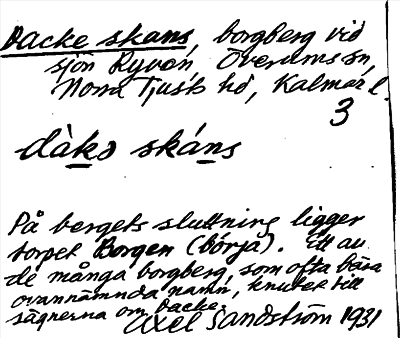 Dacke skans, borgberg vid
sjön Ryven, Överums sn,
Norra Tjusts hd, Kalmar l.
3
dàkə skáns
På bergets sluttning ligger
torpet Borgen (bórja). Ett av
de många borgberg, som ofta bära
ovannämnda namn, knutet till
sägnerna om Dacke.
Axel Sandström 1931